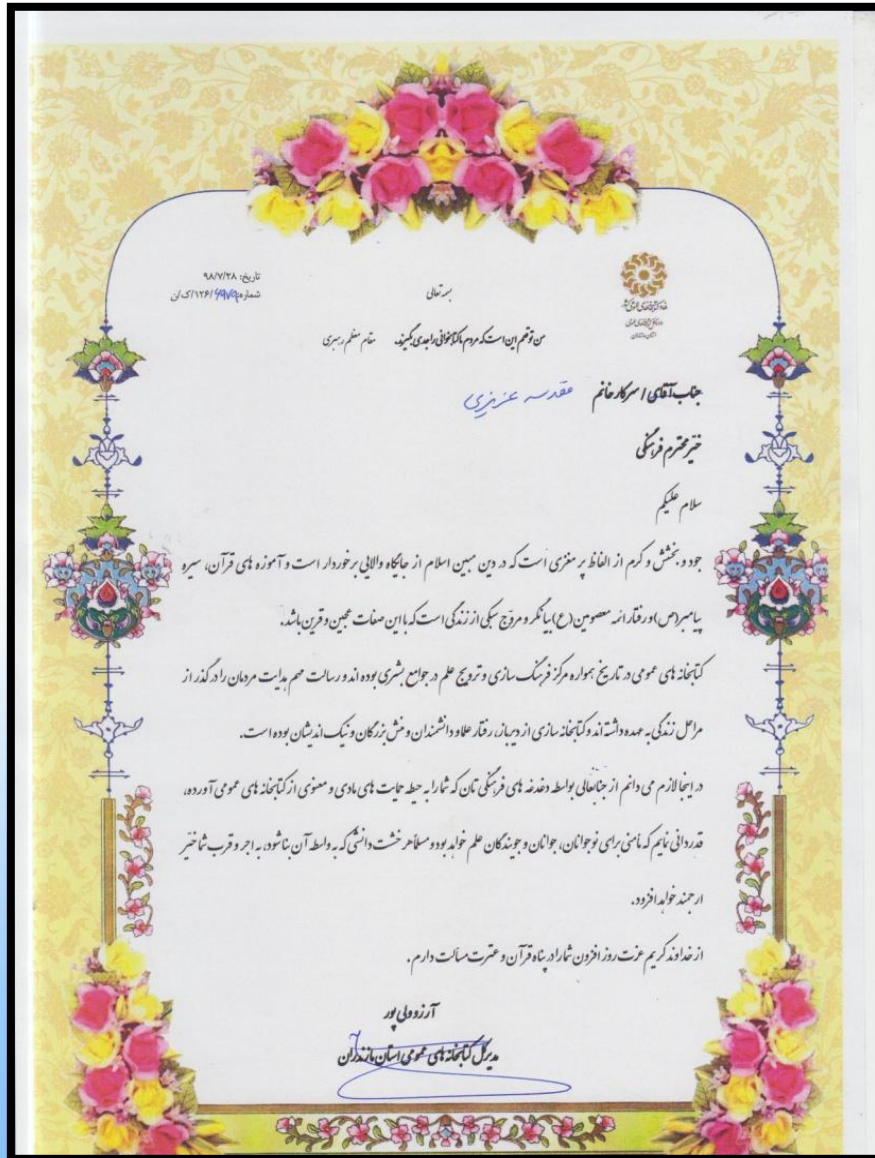 تاریخ: ۹۸/۷/۲۸
شماره: ۱۲۶/۴۹۷۹/ک/ن
نهاد کتابخانه‌های عمومی کشور
استان مازندران
بسمه تعالی
من توقعم این است که مردم ما کتابخوانی را جدی بگیرند. مقام معظم رهبری
جناب آقای / سرکار خانم مقدسه عزیزی
خیر محترم فرهنگی
سلام علیکم
جود و بخشش و کرم از الفاظ پر مغزی است که در دین مبین اسلام از جایگاه والایی برخوردار است و آموزه های قرآن، سیره
پیامبر(ص) و رفتار ائمه معصومین(ع) بیانگر و مروّج سبکی از زندگی است که با این صفات عجین و قرین باشد.
کتابخانه های عمومی در تاریخ همواره مرکز فرهنگ سازی و ترویج علم در جوامع بشری بوده اند و رسالت مهم هدایت مردمان را در گذر از
مراحل زندگی به عهده داشته اند و کتابخانه سازی از دیرباز، رفتار علما و دانشمندان و منش بزرگان و نیک اندیشان بوده است.
در اینجا لازم می دانم از جنابعالی بواسطه دغدغه های فرهنگی تان که شما را به حیطه حمایت های مادی و معنوی از کتابخانه های عمومی آورده،
قدردانی نمایم که مأمنی برای نوجوانان، جوانان و جویندگان علم خواهد بود و مسلماً هر خشت دانشی که به واسطه آن بنا شود، به اجر و قرب شما خیّر
ارجمند خواهد افزود.
از خداوند کریم عزت روز افزون شما را در پناه قرآن و عترت مسألت دارم.
آرزو ولی پور
مدیرکل کتابخانه های عمومی استان مازندران